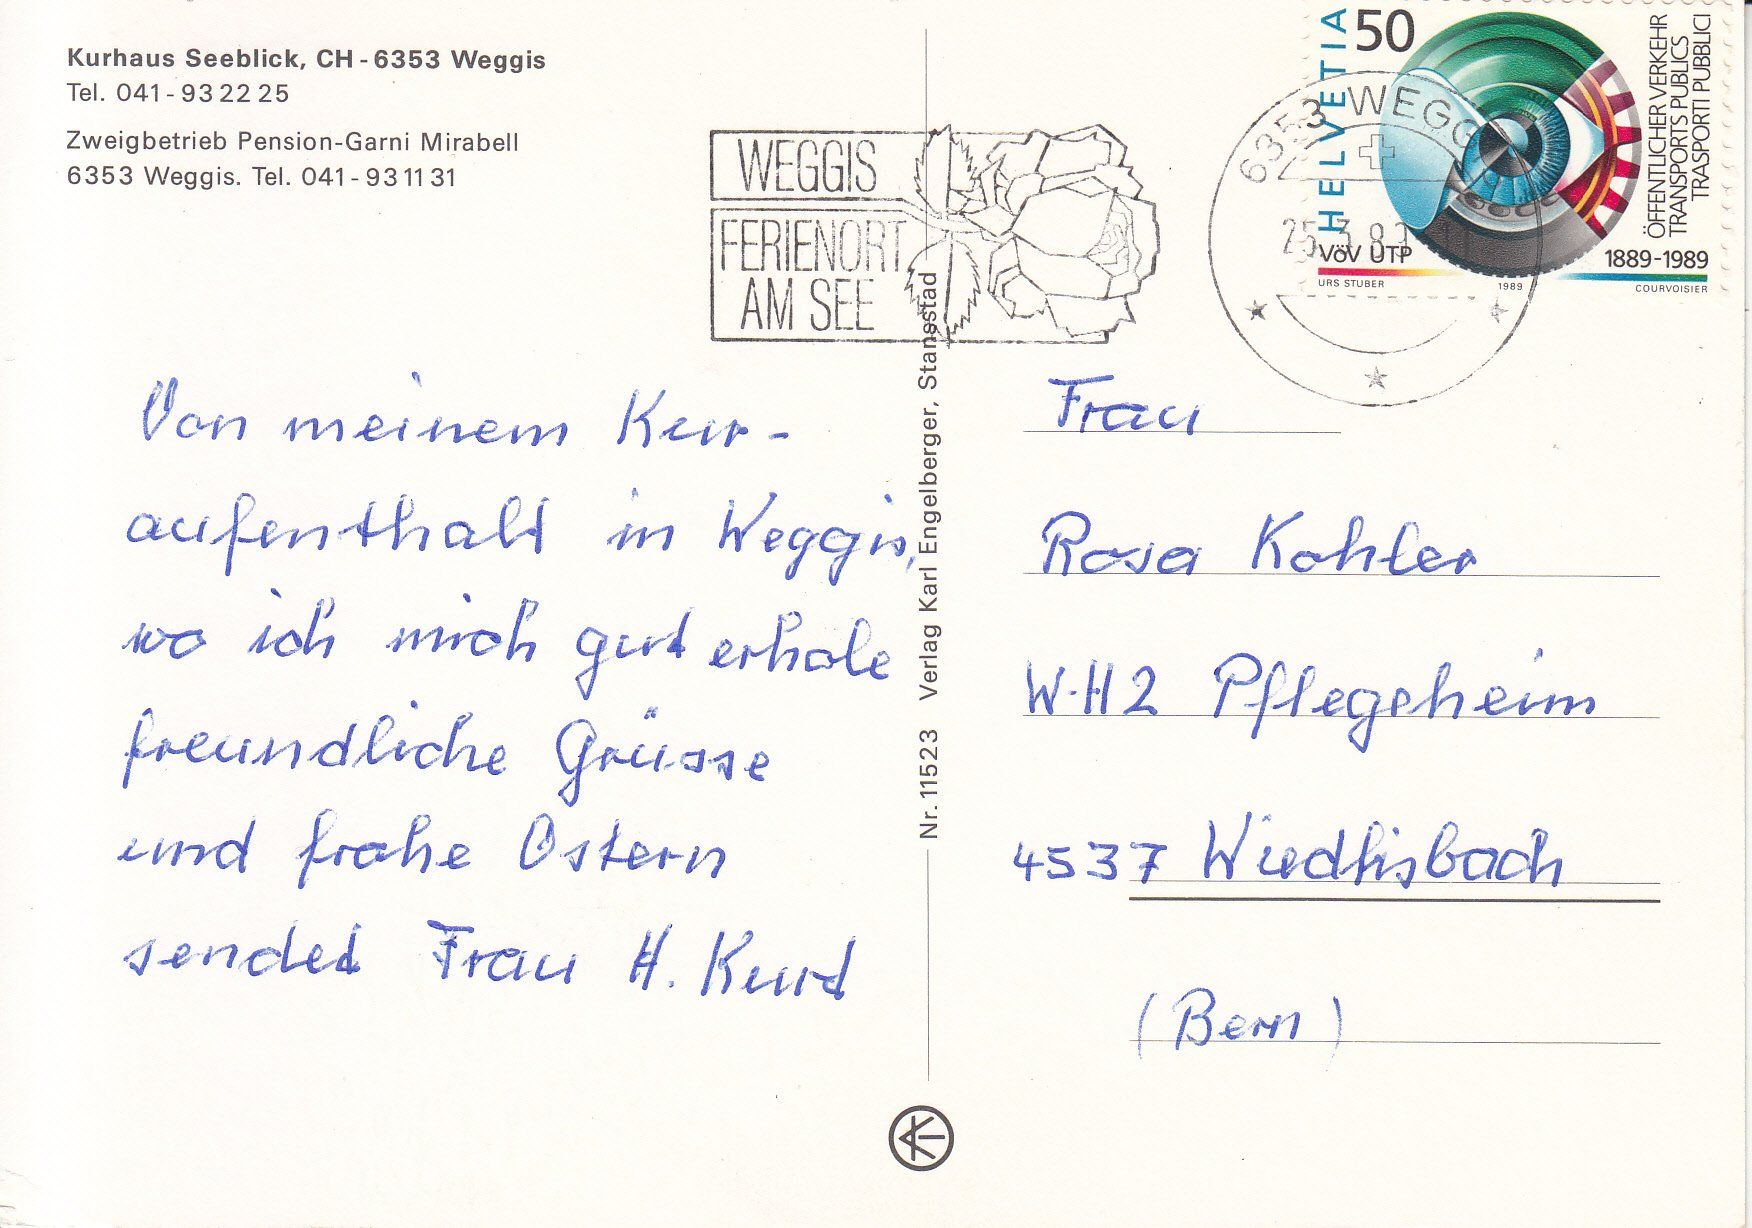 Kurhaus Seeblick, CH - 6353 Weggis
Tel. 041 - 93 22 25
Zweigbetrieb Pension-Garni Mirabell
6353 Weggis. Tel. 041 - 93 11 31
WEGGIS
FERIENORT
AM SEE
6353 WEGG
25.3.89
HELVETIA
50
ÖFFENTLICHER VERKEHR
TRANSPORTS PUBLICS
TRASPORTI PUBBLICI
VöV UTP
1889-1989
URS STUBER
1989
COURVOISIER
Von meinem Kur-
aufenthalt in Weggis,
wo ich mich gut erhole
freundliche Grüsse
und frohe Ostern
sendet Frau H. Kurd
Nr. 11523 Verlag Karl Engelberger, Stansstad
Frau
Rosa Kohler
W-H2 Pflegeheim
4537 Wiedlisbach
(Bern)